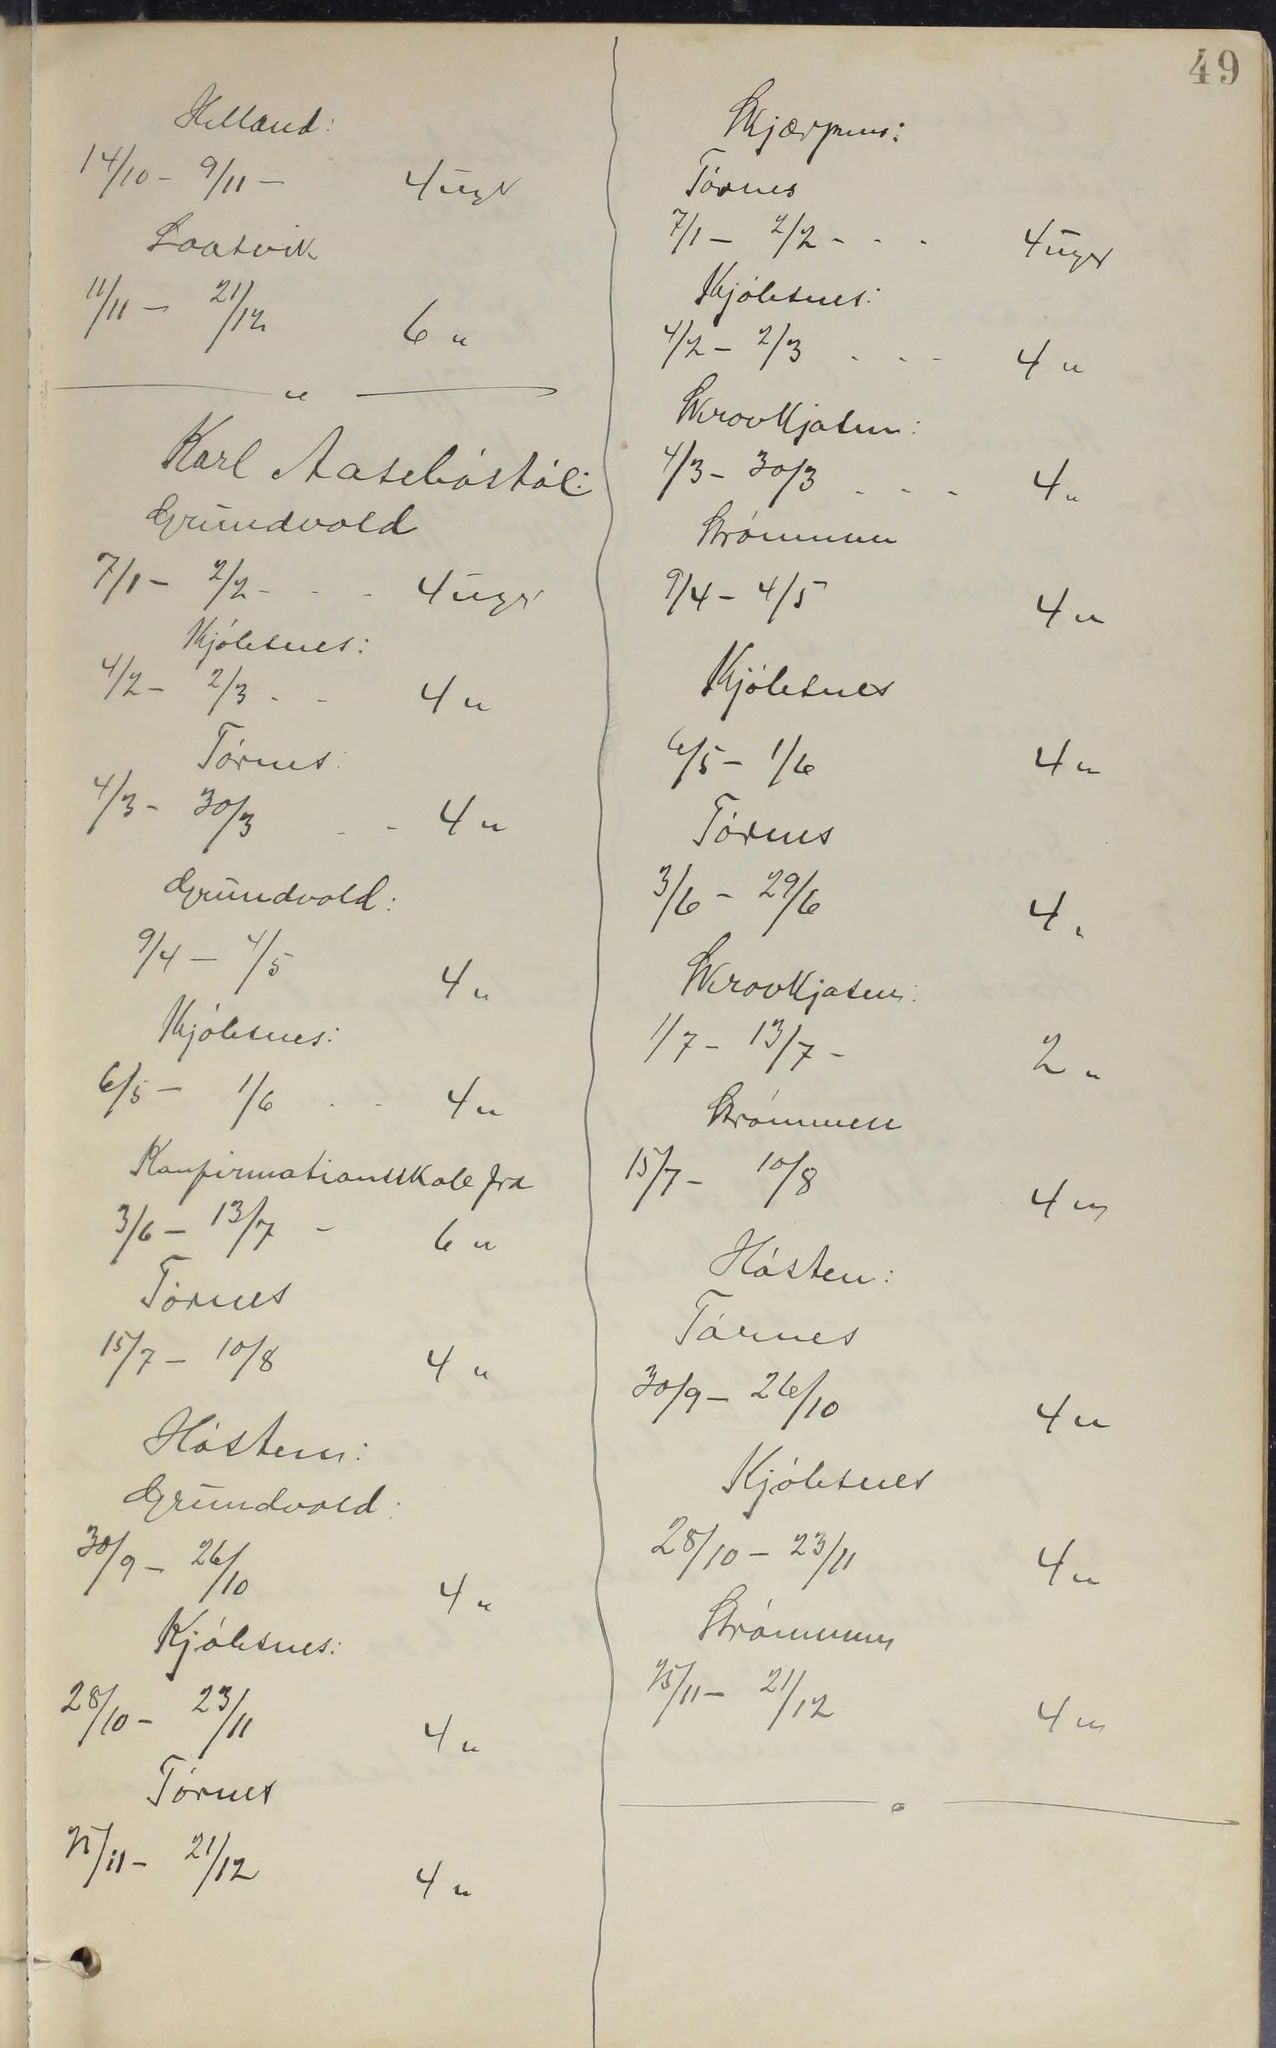 49
Helland:
14/10 - 9/11 - 4 uger
Laatvik
11/11 - 21/12 6 "
"
Karl Aasebøstøl:
Grundvold
7/1 - 2/2 - - - 4 uger
Kjølesnes:
4/2 - 2/3 - - 4 "
Tørnes:
4/3 - 30/3 - - 4 "
Grundvold:
9/4 - 4/5 4 "
Kjølesnes:
6/5 - 1/6 - - 4 "
Konfirmationsskole fra
3/6 - 13/7 - 6 "
Tørnes
15/7 - 10/8 4 "
Høsten:
Grundvold:
30/9 - 26/10 4 "
Kjølesnes:
28/10 - 23/11 4 "
Tørnes
25/11 - 21/12 4 "
Tørnes
7/1 - 2/2 - - - 4 uger
Kjølesnes:
4/2 - 2/3 - - - 4 "
Skrovkjosen:
4/3 - 30/3 - - - 4 "
Strømmen
9/4 - 4/5 4 "
Kjølesnes
6/5 - 1/6 4 "
Tørnes
3/6 - 29/6 4 "
Skrovkjosen:
1/7 - 13/7 - 2 "
Strømmen
15/7 - 10/8 4 "
Høsten:
Tørnes
30/9 - 26/10 4 "
Kjølesnes
28/10 - 23/11 4 "
Strømmen
25/11 - 21/12 4 "